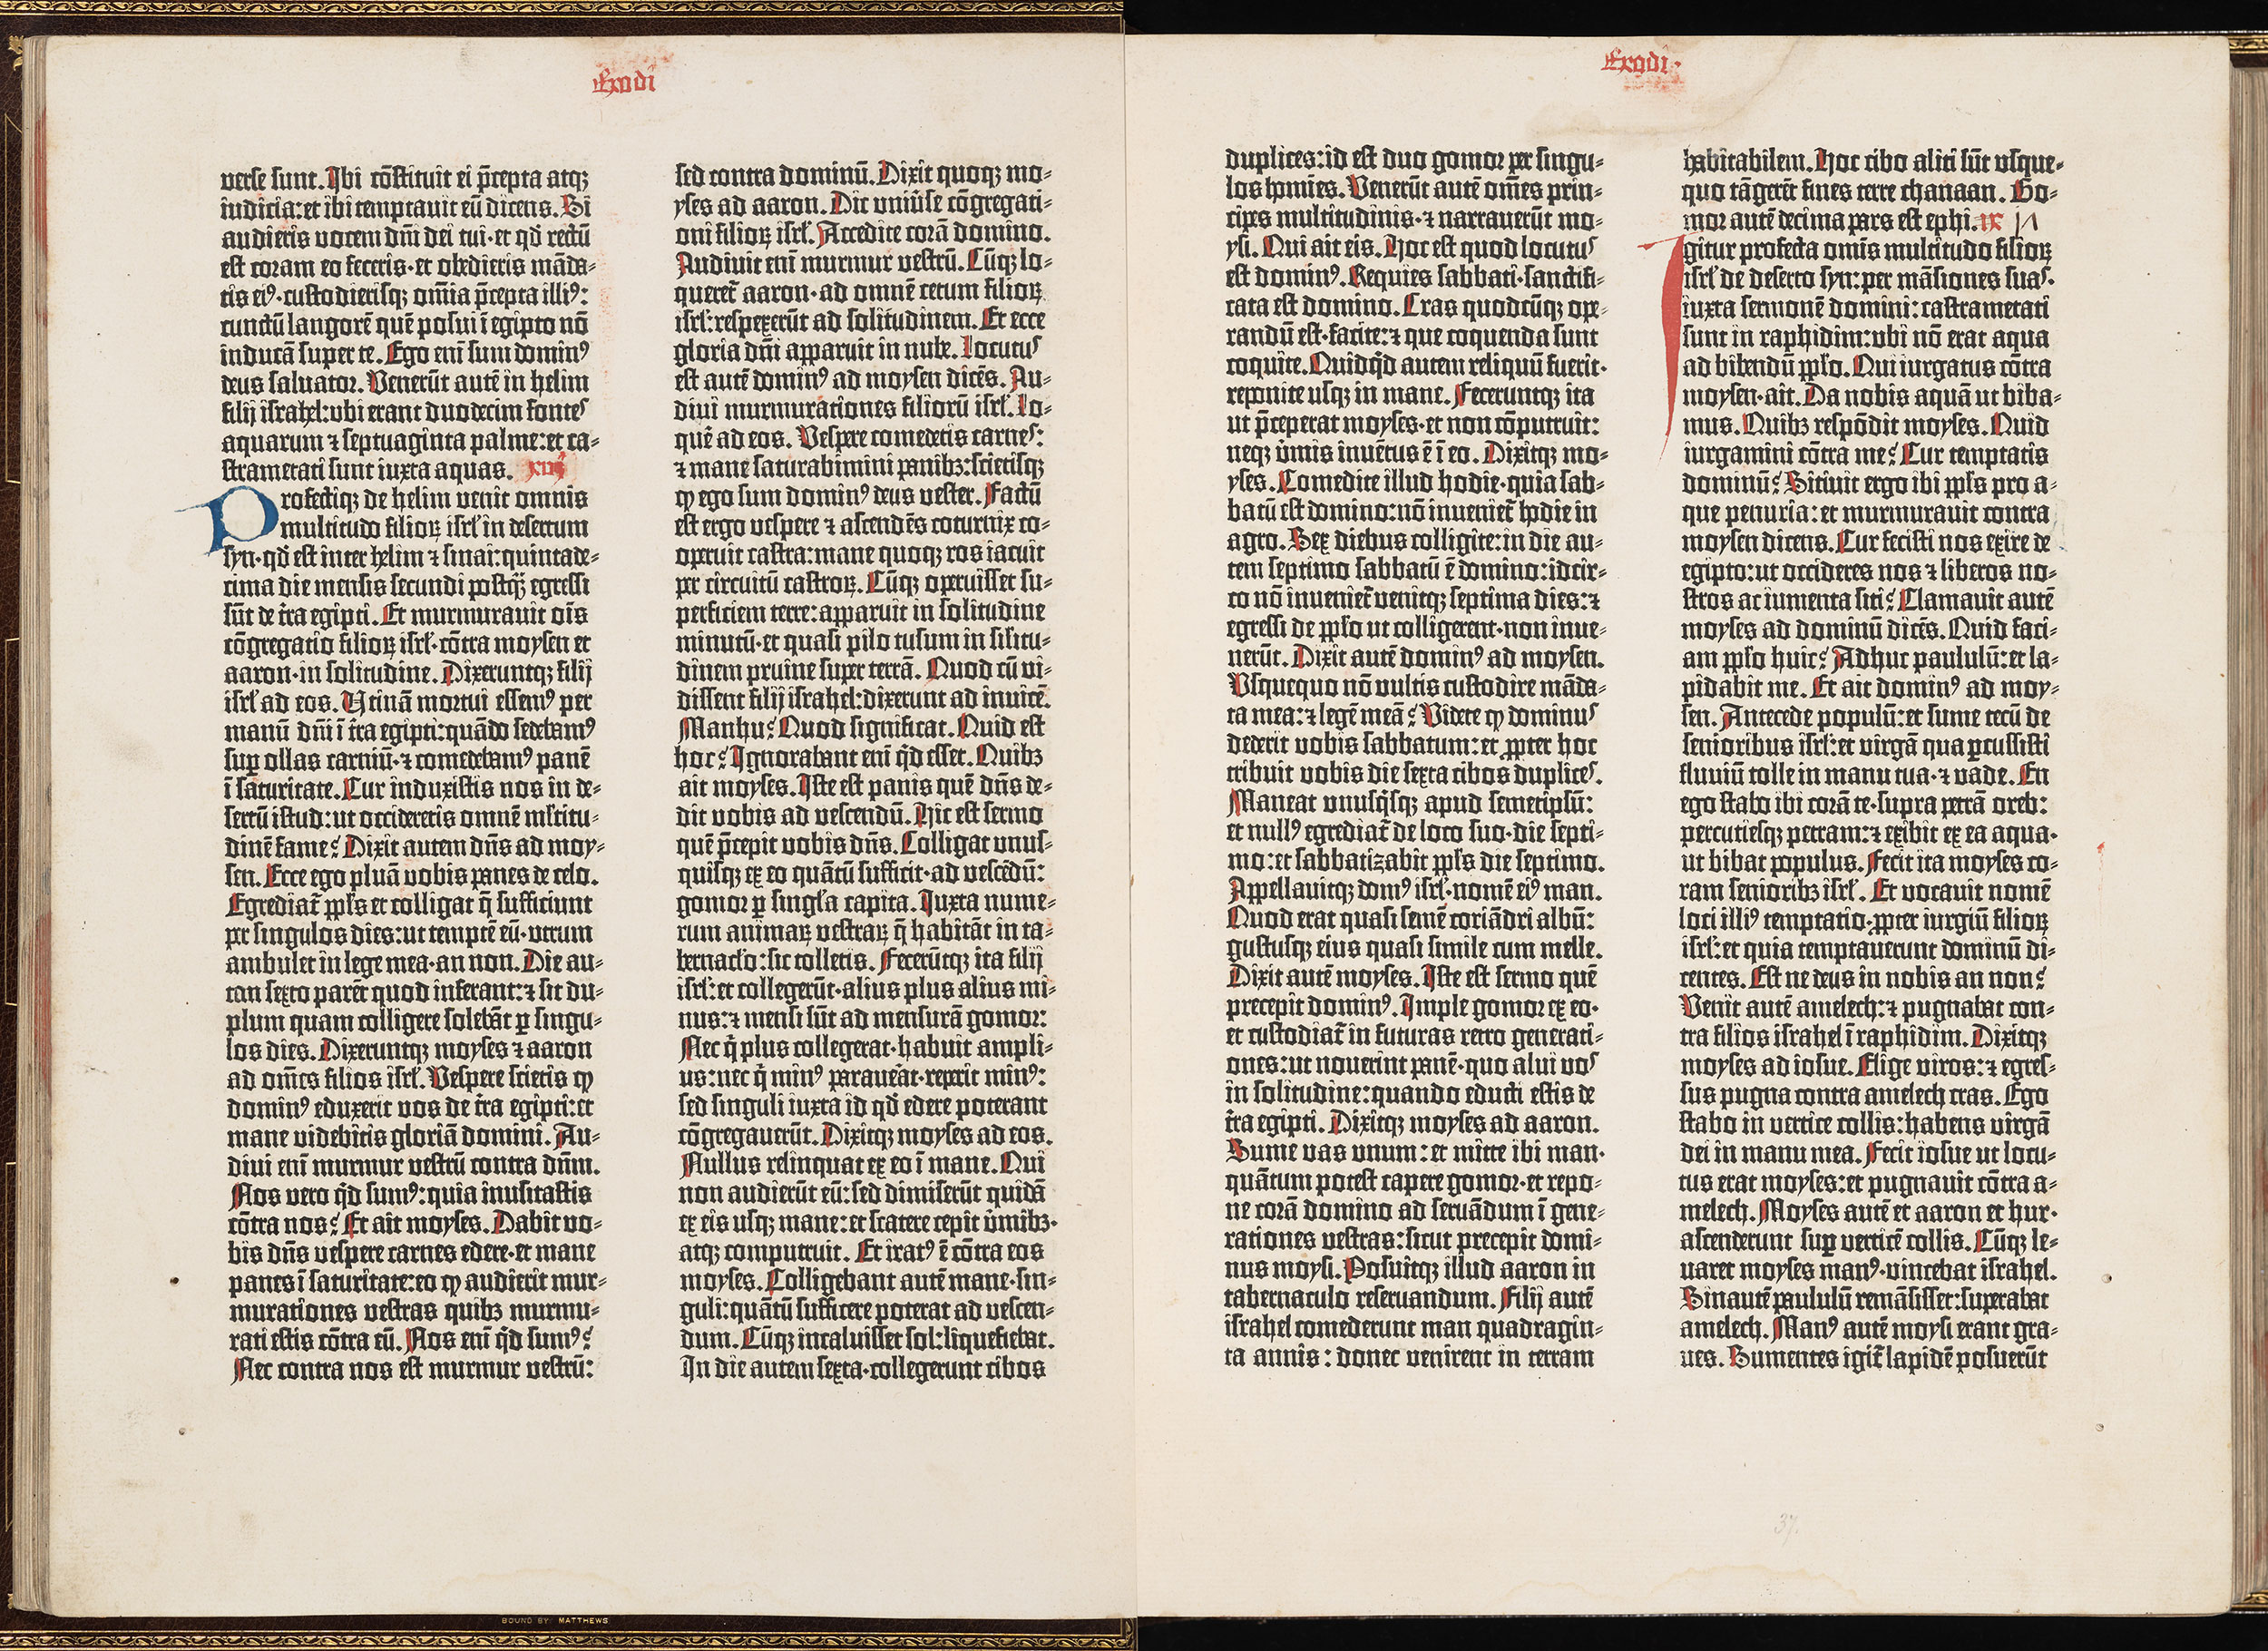 Exodi
verse sunt. Ibi cōstituit ei p̄cepta atqꝫ
iudicia: et ibi temptauit eū dicens. Si
audieris vocem dn̄i dei tui · et qd̄ rectū
est coram eo feceris · et obedieris māda⸗
tis eiꝰ · custodierisqꝫ om̄ia p̄cepta illiꝰ:
cunctū langorē quē posui ī egipto nō
inducā super te. Ego eni̅ sum dominꝰ
deus saluator. Venerūt autē in helim
filij israhel: ubi erant duodecim fontes
aquarum ⁊ septuaginta palme: et ca⸗
strametati sunt iuxta aquas. xvi
Profectiqꝫ de helim venit omnis
multitudo filioꝝ isrl̄ in desertum
syn · qd̄ est inter helim ⁊ sinai: quintade⸗
cima die mensis secundi postq̄ꝫ egressi
sūt de t̄ra egipti. Et murmurauit ois̄
cōgregatio filioꝝ isrl̄ · cōtra moysen et
aaron · in solitudine. Dixeruntqꝫ filij
isrl̄ ad eos. Utinā mortui essemꝰ per
manū dn̄i ī t̄ra egipti: quādo sedebamꝰ
suꝑ ollas carniū · ⁊ comedebamꝰ panē
ī saturitate. Cur induxistis nos in de⸗
sertū istud: ut occideretis omnē ml̄titu⸗
dinē fame? Dixit autem dn̄s ad moy⸗
sen. Ecce ego pluā vobis panes de celo.
Egrediat̄ ppl̄s et colligat q̄ sufficiunt
per singulos dies: ut temptē eū · vtrum
ambulet in lege mea · an non. Die au⸗
tem sexto parēt quod inferant: ⁊ sit du⸗
plum quam colligere solebāt ꝑ singu⸗
los dies. Dixeruntqꝫ moyses ⁊ aaron
ad om̄es filios isrl̄. Vespere scietis ꝙ
dominꝰ eduxerit vos de t̄ra egipti: et
mane videbitis gloriā domini. Au⸗
diui eni̅ murmur vestrū contra dn̄m.
Nos vero qd̄ sumꝰ: quia musitastis
cōtra nos? Et ait moyses. Dabit vo⸗
bis dn̄s vespere carnes edere · et mane
panes ī saturitate: eo ꝙ audierit mur⸗
murationes vestras quibꝫ murmu⸗
rati estis cōtra eū. Nos eni̅ qd̄ sumꝰ?
Nec contra nos est murmur vestrū:
sed contra dominū. Dixit quoqꝫ mo⸗
yses ad aaron. Dic vniūse cōgregati⸗
oni filioꝝ isrl̄. Accedite corā domino.
Audiuit eni̅ murmur vestrū. Cūqꝫ lo⸗
queret̄ aaron · ad omnē cetum filioꝝ
isrl̄: respexerūt ad solitudinem. Et ecce
gloria dn̄i apparuit in nube. Locutus
est autē dominꝰ ad moysen dicēs. Au⸗
diui murmurationes filiorū isrl̄. Lo⸗
quē ad eos. Vespere comedetis carnes:
⁊ mane saturabimini panibꝫ: scietisqꝫ
ꝙ ego sum dominꝰ deus vester. Factū
est ergo vespere ⁊ ascendēs coturnix co⸗
operuit castra: mane quoqꝫ ros iacuit
per circuitū castroꝝ. Cūqꝫ operuisset su⸗
perficiem terre: apparuit in solitudine
minutū · et quasi pilo tusum in silitu⸗
dinem pruine super terrā. Quod cū vi⸗
dissent filij israhel: dixerunt ad inuicē.
Manhu? Quod significat. Quid est
hoc? Ignorabant eni̅ qd̄ esset. Quibꝫ
ait moyses. Iste est panis quē dn̄s de⸗
dit vobis ad vescendū. Hic est sermo
quē p̄cepit vobis dn̄s. Colligat vnus⸗
quisqꝫ ex eo quātū sufficit · ad vescēdū:
gomor ꝑ singl̄a capita. Iuxta nume⸗
rum animaꝝ vestraꝝ q̄ habitāt in ta⸗
bernacl̄o: sic colletis. Fecerūtqꝫ ita filij
isrl̄: et collegerūt · alius plus alius mi⸗
nus: ⁊ mensi sūt ad mensurā gomor:
Nec q̄ plus collegerat · habuit ampli⸗
us: nec q̄ minꝰ paraueāt · reperit minꝰ:
sed singuli iuxta id qd̄ edere poterant
cōgregauerūt. Dixitqꝫ moyses ad eos.
Nullus relinquat ex eo ī mane. Qui
non audierūt eū: sed dimiserūt quidā
ex eis usqꝫ mane: et scatere cepit v̄mibꝫ ·
atqꝫ computruit. Et iratꝰ ē cōtra eos
moyses. Colligebant autē mane · sin⸗
guli: quātū sufficere poterat ad vescen⸗
dum. Cūqꝫ incaluisset sol: liquefiebat.
In die autem sexta · collegerunt cibos
Exodi ·
duplices: id est duo gomor per singu⸗
los homi̅es. Venerūt autē om̄es prin⸗
cipes multitudinis · ⁊ narrauerūt mo⸗
ysi. Qui ait eis. Hoc est quod locutus
est dominꝰ. Requies sabbati · sanctifi⸗
cata est domino. Cras quodcūqꝫ ope⸗
randū est · facite: ⁊ que coquenda sunt
coquite. Quidqd̄ autem reliquū fuerit ·
reponite usqꝫ in mane. Feceruntqꝫ ita
ut p̄ceperat moyses · et non cōputruit:
neqꝫ v̄mis inuētus ē ī eo. Dixitqꝫ mo⸗
yses. Comedite illud hodie · quia sab⸗
batū est domino: nō inueniet̄ hodie in
agro. Sex diebus colligite: in die au⸗
tem septimo sabbatū ē domino: idcir⸗
co nō inueniet̄ venitqꝫ septima dies: ⁊
egressi de ppl̄o ut colligerent · non inue⸗
nerūt. Dixit autē dominꝰ ad moysen.
Vsquequo nō vultis custodire māda⸗
ta mea: ⁊ legē meā? Videte ꝙ dominus
dederit vobis sabbatum: et ꝓpter hoc
tribuit vobis die sexta cibos duplices.
Maneat vnusq̄sqꝫ apud semetipsū:
et nullꝰ egrediat̄ de loco suo · die septi⸗
mo: et sabbatizabit ppl̄s die septimo.
Appellauitqꝫ domꝰ isrl̄ · nomē eiꝰ man.
Quod erat quasi semē coriādri albū:
gustusqꝫ eius quasi simile cum melle.
Dixit autē moyses. Iste est sermo quē
precepit dominꝰ. Imple gomor ex eo ·
et custodiat̄ in futuras retro generati⸗
ones: ut nouerint panē · quo alui vos
in solitudine: quando educti estis de
t̄ra egipti. Dixitqꝫ moyses ad aaron.
Sume vas vnum: et mitte ibi man ·
quātum potest capere gomor · et repo⸗
ne corā domino ad seruādum ī gene⸗
rationes vestras: sicut precepit domi⸗
nus moysi. Posuitqꝫ illud aaron in
tabernaculo reseruandum. Filij autē
israhel comederunt man quadragin⸗
ta annis: donec venirent in terram
habitabilem. Hoc cibo aliti sūt vsque⸗
quo tāgerēt fines terre chanaan. Go⸗
mor autē decima pars est ephi.
Igitur profecta omi̅s multitudo filioꝝ
isrl̄ de deserto syn: per māsiones suas ·
iuxta sermonē domini: castrametati
sunt in raphidim: ubi nō erat aqua
ad bibendū ppl̄o. Qui iurgatus cōtra
moysen · ait. Da nobis aquā ut biba⸗
mus. Quibꝫ respōdit moyses. Quid
iurgamini cōtra me? Cur temptatis
dominū? Sitiuit ergo ibi ppl̄s pro a⸗
que penuria: et murmurauit contra
moysen dicens. Cur fecisti nos exire de
egipto: ut occideres nos ⁊ liberos no⸗
stros ac iumenta siti? Clamauit autē
moyses ad dominū dicēs. Quid faci⸗
am ppl̄o huic? Adhuc paululū: et la⸗
pidabit me. Et ait dominꝰ ad moy⸗
sen. Antecede populū: et sume tecū de
senioribus isrl̄: et virgā qua ꝑcussisti
fluuiū tolle in manu tua · ⁊ vade. En
ego stabo ibi corā te · supra petrā oreb:
percutiesqꝫ petram: ⁊ exibit ex ea aqua ·
ut bibat populus. Fecit ita moyses co⸗
ram senioribꝫ isrl̄. Et vocauit nomē
loci illiꝰ temptatio · ꝓpter iurgiū filioꝝ
isrl̄: et quia temptauerunt dominū di⸗
centes. Est ne deus in nobis an non?
Venit autē amelech: ⁊ pugnabat con⸗
tra filios israhel ī raphidim. Dixitqꝫ
moyses ad iosue. Elige viros: ⁊ egres⸗
sus pugna contra amelech cras. Ego
stabo in vertice collis: habens virgā
dei in manu mea. Fecit iosue ut locu⸗
tus erat moyses: et pugnauit cōtra a⸗
melech. Moyses autē et aaron et hur ·
ascenderunt suꝑ verticē collis. Cūqꝫ le⸗
uaret moyses manꝰ · vincebat israhel.
Sin autē paululū remāsisset: superabat
amelech. Manꝰ autē moysi erant gra⸗
ues. Sumentes igit̄ lapidē posuerūt
37.
BOUND BY MATTHEWS